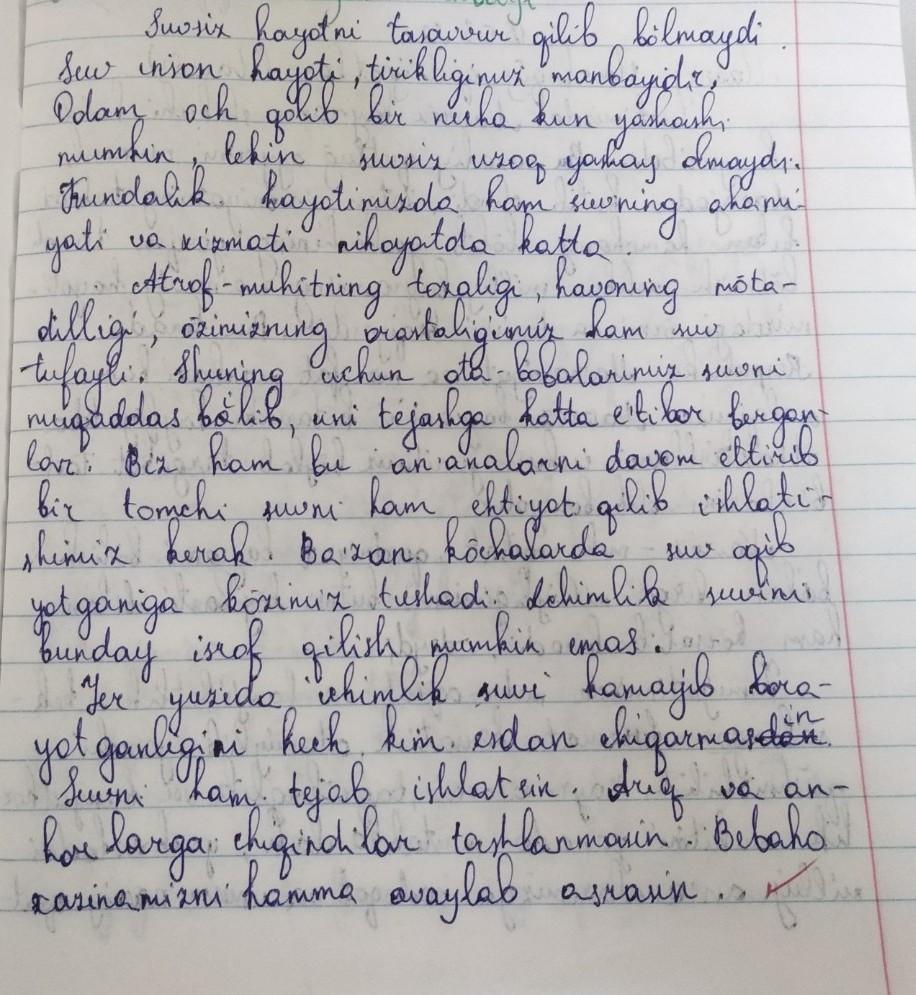 Suvsiz hayotni tasavvur qilib bólmaydi.
Suv inson hayoti, tirikligimiz manbayidir,
Odam och qolib bir necha kun yashashi
mumkin, lekin suvsiz uzoq yashay olmaydi.
Kundalik hayotimizda ham suvning ahami-
yati va xizmati nihoyatda katta.
Atrof-muhitning tozaligi, havoning móta-
dilligi, ózimizning orastaligimiz ham suv
tufayli. Shuning uchun ota-bobalarimiz suvni
muqaddas bólib, uni tejashga katta e'tibor bergan-
lar. Biz ham bu an'analarni davom ettirib
bir tomchi suvni ham ehtiyot qilib ishlati-
shimiz kerak. Ba'zan kóchalarda suv oqib
yotganiga kózimiz tushadi. Ichimlik suvini
bunday isrof qilish mumkin emas.
Yer yuzida ichimlik suvi kamayib bora-
yotganligini hech kim esdan chiqarmasin.
Suvni ham tejab ishlatsin. Ariq va an-
horlarga chiqindilar tashlanmasin. Bebaho
xazinamizni hamma avaylab asrasin..